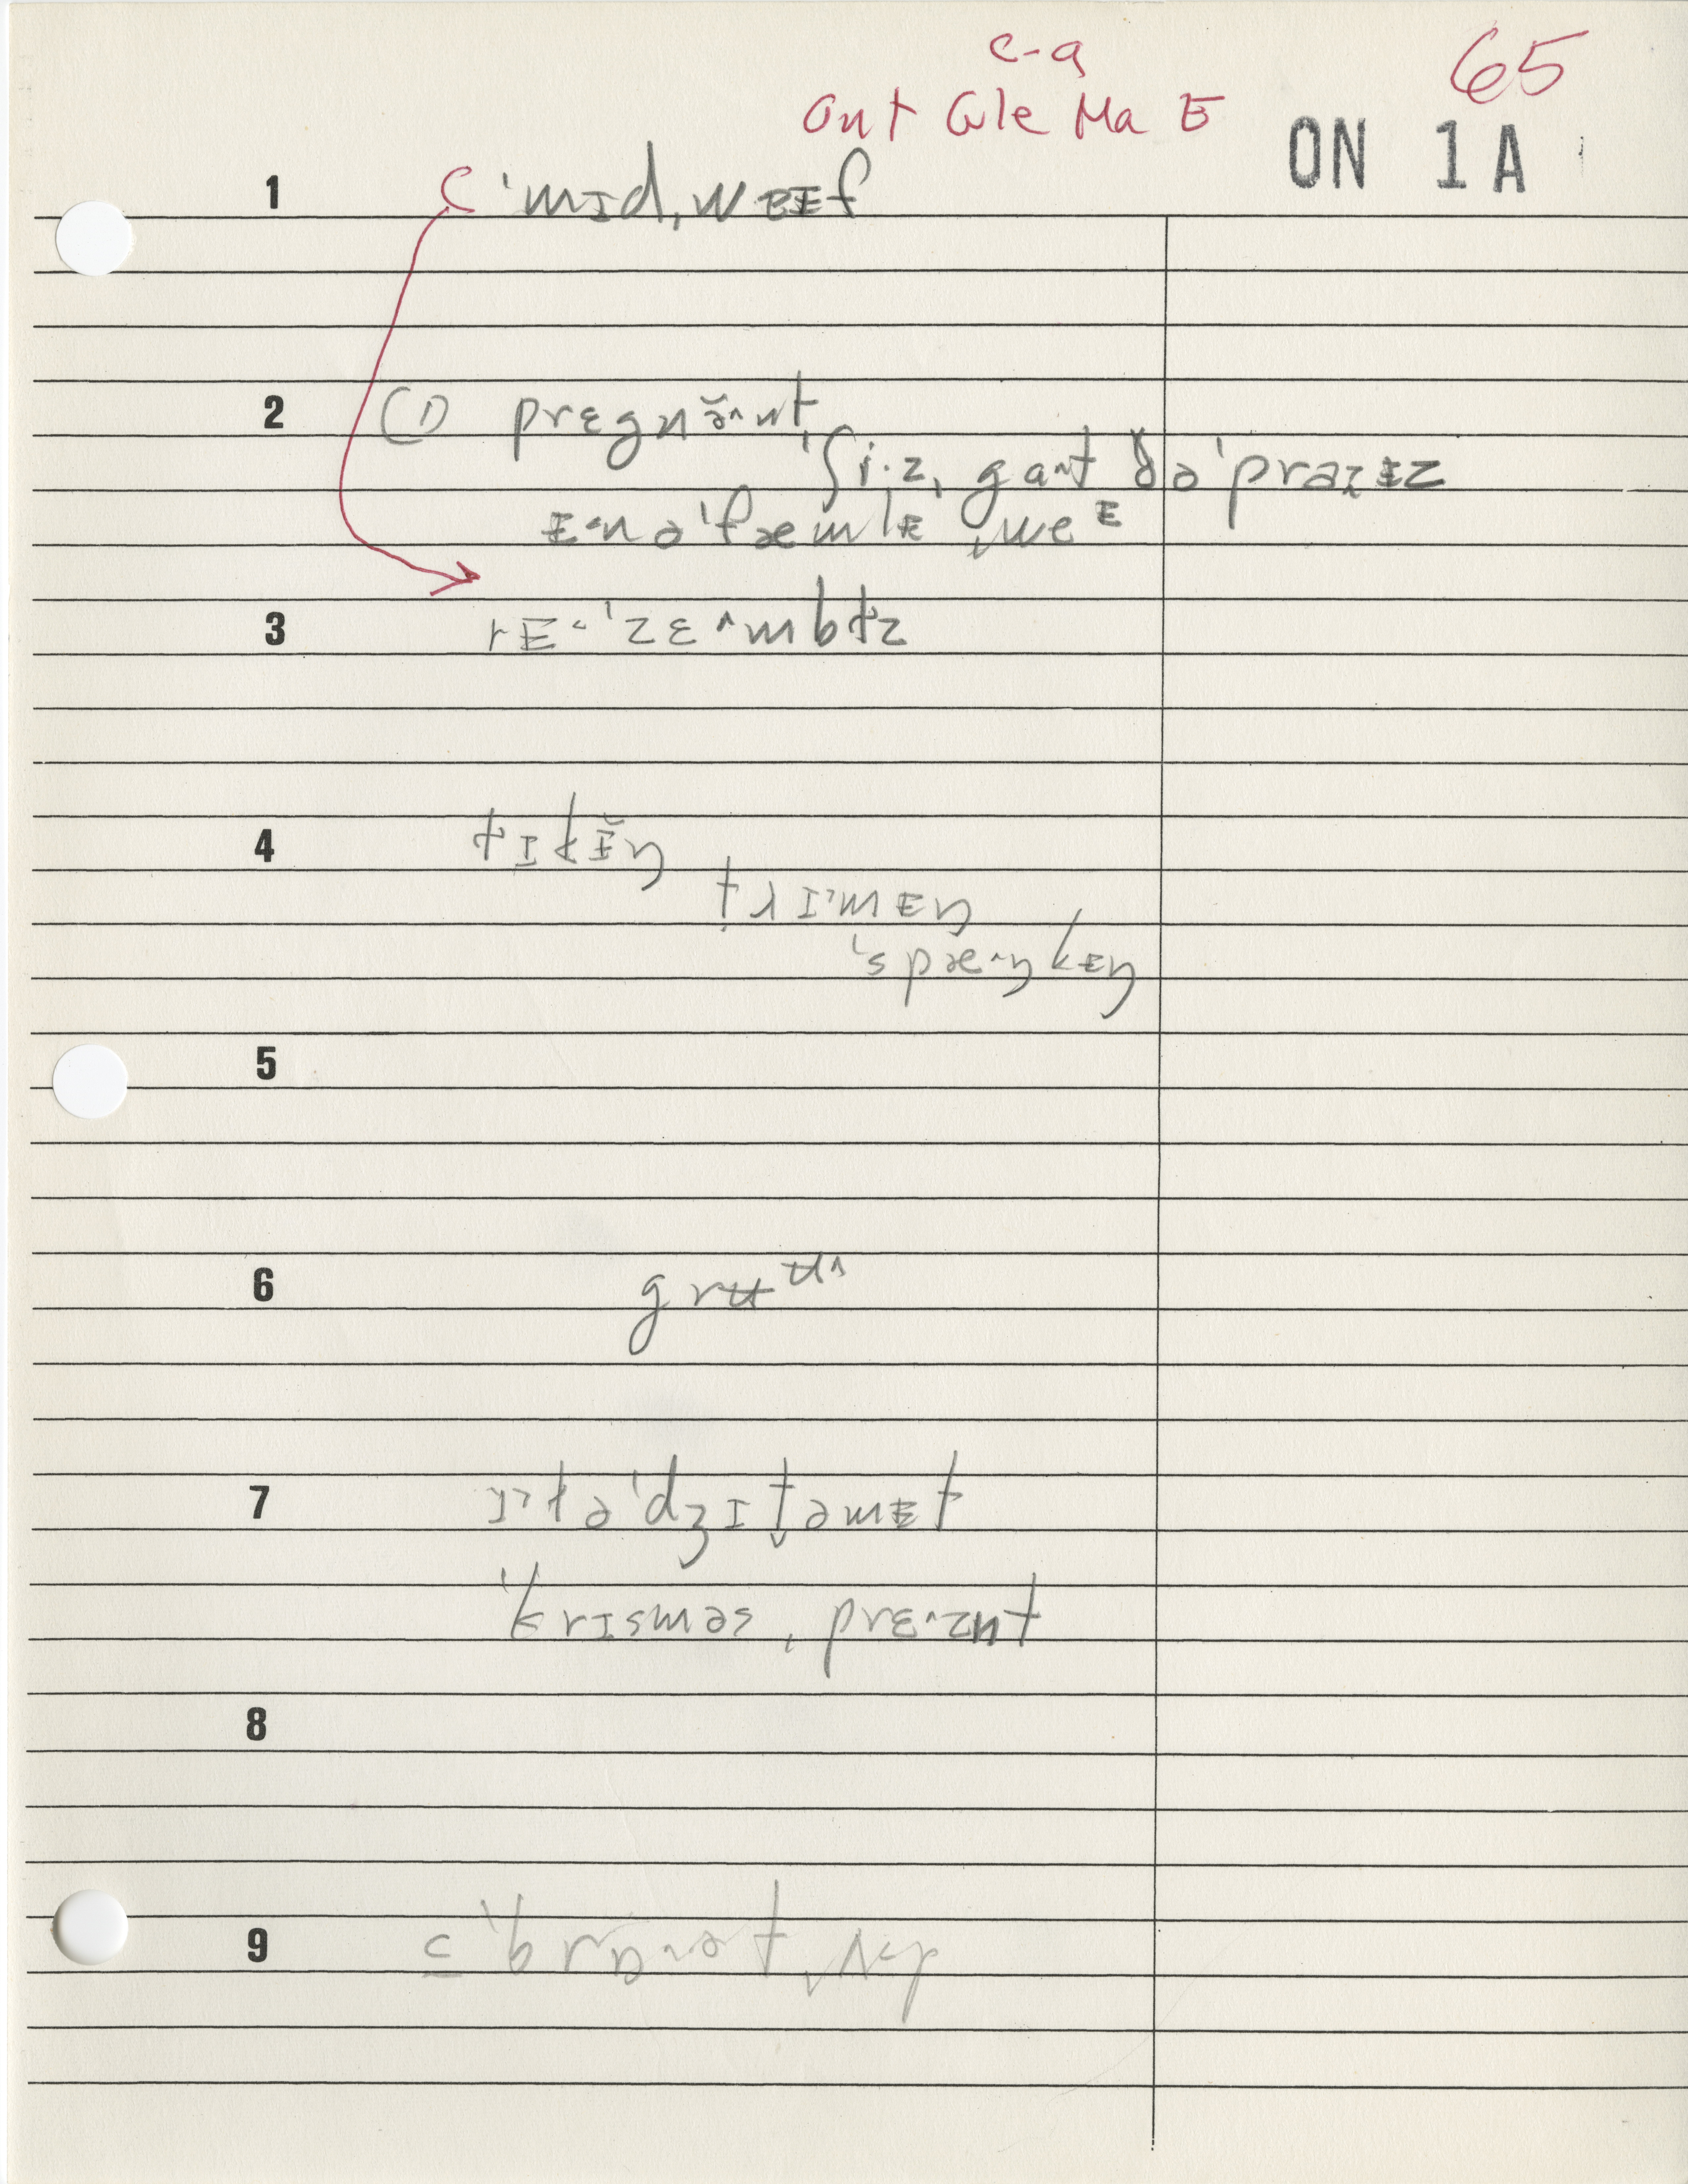 c-a
65
Ont Gle Ma E
ON 1A
1 C ˈmɪd,wᴇɪf
2 (1) prɛgnə̆^nt
ˈʃi·z, gant ðəˈpraɪɪz
ɪ^n əˈfæmlɪ ˌweᴱ
3 rɪ^ˈzɛ^mbḷz
4 tɪkɪ̆ŋ
trɪmɪŋ
ˈspæ^ŋkɪŋ
5
6 grʉᵘ^
7 ɪt əˈdʒɪt̬əmɪt
ˈkrɪsməs ˌprɛ^znt
8
9 c ˈbrɒ^ət ˌʌp